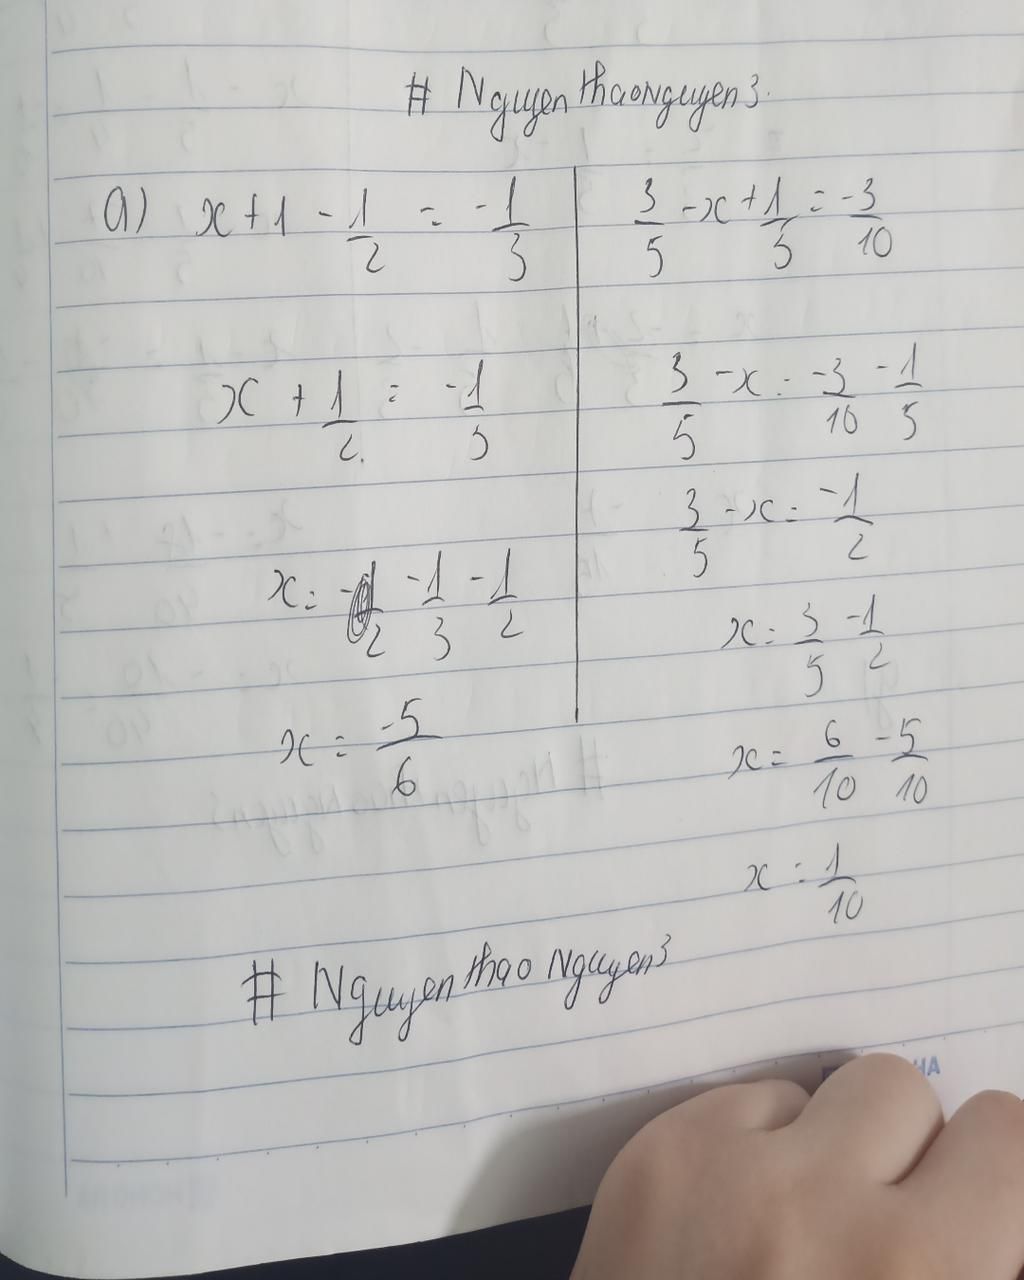 # NguyenthaoNguyen3.
a) x + 1 - 1/2 = -1/3
x + 1/2 = -1/3
x = -1/3 - 1/2
x = -5/6
3/5 - x + 1/5 = -3/10
3/5 - x = -3/10 - 1/5
3/5 - x = -1/2
x = 3/5 - 1/2
x = 6/10 - 5/10
x = 1/10
# Nguyenthao Nguyen3
HA